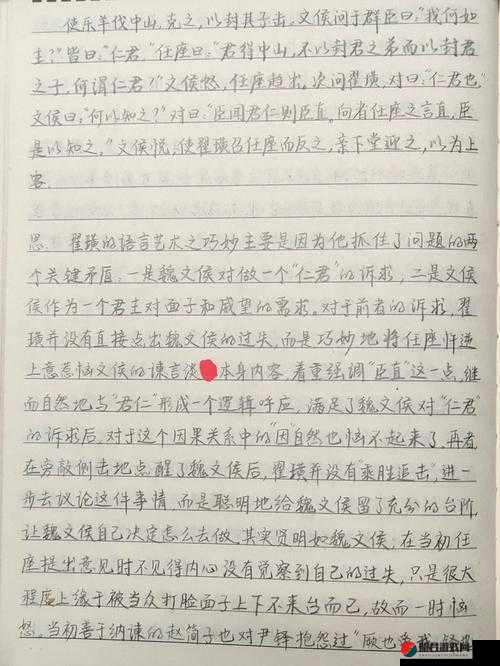 使乐羊伐中山，克之，以封其子击。文侯问于群臣曰："我何如
主？"皆曰："仁君。"任座曰："君得中山，不以封君之弟而以封君
之子，何谓仁君？"文侯怒，任座趋出。次问翟璜，对曰："仁君也"
文侯曰："何以知之？"对曰："臣闻君仁则臣直，向者任座之言直，臣
是以知之。"文侯悦，使翟璜召任座而反之，亲下堂迎之，以为上
客.
思. 翟璜的语言艺术之巧妙主要是因为他抓住了问题的两
个关键矛盾：一是魏文侯对做一个"仁君"的诉求，二是文侯
侯作为一个君主对面子和威望的需求。对于前者的诉求，翟
璜并没有直接点出魏文侯的过失，而是巧妙地将任座忤逆
上意惹恼文侯的谏言淡本身内容，着重强调"臣直"这一点，继
而自然地与"君仁"形成一个逻辑呼应，满足了魏文侯对"仁君"
的诉求后，对于这个因果关系中的"因"自然也恼不起来了，再者
在旁敲侧击地点醒了魏文侯后，翟璜并没有"乘胜追击"，进一
步去议论这件事情，而是聪明地给魏文侯留了充分的台阶，
让魏文侯自己决定怎么去做，其实贤明如魏文侯，在当初任
座提出意见时不见得内心没有觉察到自己的过失，只是很大
程度上缘于被当众打脸面子上下不来台而已，故而一时恼
怒。当初善于纳谏的赵简子也对尹铎抱怨过"厥也爱我，铎